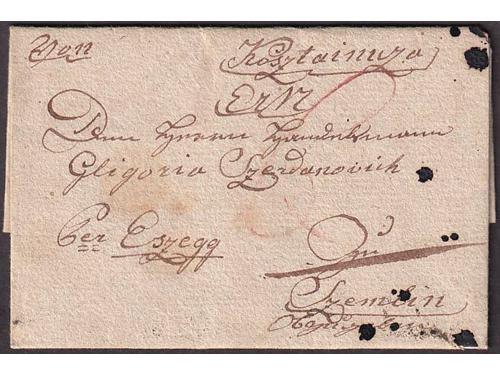 Von Kosztainicza
Dem Herrn Handelsmann
Gligoria Szerdanovich
Per Eszegg
Zu
Szemlin